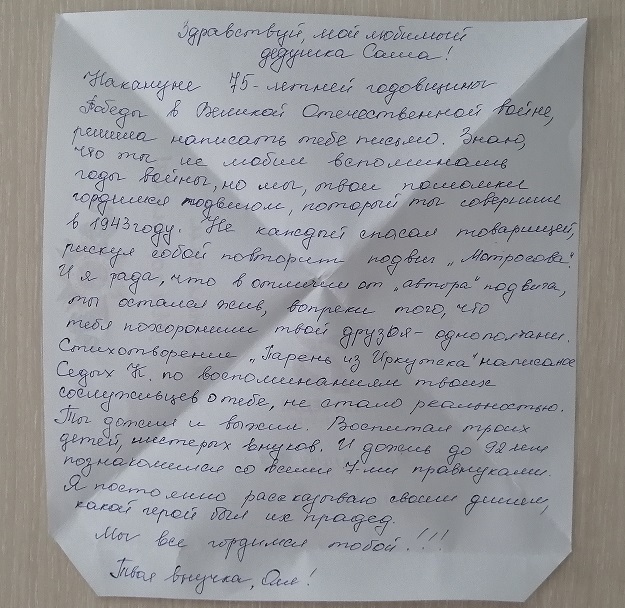 Здравствуй, мой любимый
дедушка Саша!
Накануне 75-летней годовщины
Победы в Великой Отечественной войне,
решила написать тебе письмо. Знаю,
что ты не любил вспоминать
годы войны, но мы, твои потомки
гордимся подвигом, который ты совершил
в 1943 году. Не каждый спасал товарищей,
рискуя собой повторит подвиг „Матросова".
И я рада, что в отличии от „автора" подвига,
ты остался жив, вопреки того, что
тебя похоронили твои друзья - однополчани.
Стихотворение „Парень из Иркутска" написаное
Седых К. по воспоминаниям твоих
сослуживцев о тебе, не стало реальностью.
Ты дожил и выжил. Воспитал троих
детей, шистерых внуков. И дожив до 92 лет
познакомился со всеми 7-ми правнуками.
Я постоянно рассказываю своим дитям,
какой герой был их прадед.
Мы все гордимся тобой!!!
Твоя внучка, Оля!